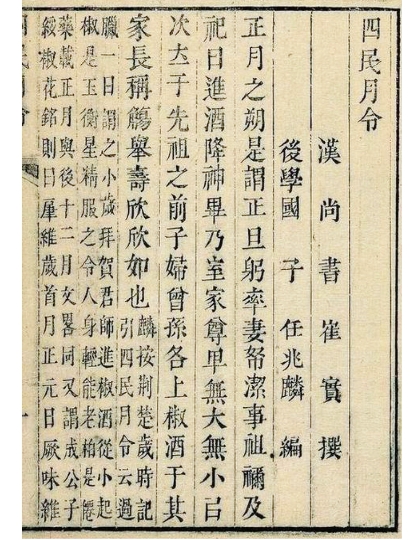 四民月令
漢尚書崔實撰
後學國子任兆麟編
正月之朔是謂正旦躬率妻帑潔事祖禰及
祀日進酒降神畢乃室家尊卑無大無小㠯
次㘴于先祖之前子婦曾孫各上椒酒于其
家長稱觴舉壽欣欣如也麟按荆楚歲時記
引四民月令云過
臘一日謂之小歲拜賀君師進椒酒從小起
椒是玉衡星精服之令人身輕能老柏是僊
藥載正月與後十二月文畧同又謂成公子
綏椒花銘則曰肇維歲首月正元日厥味維
四民月令